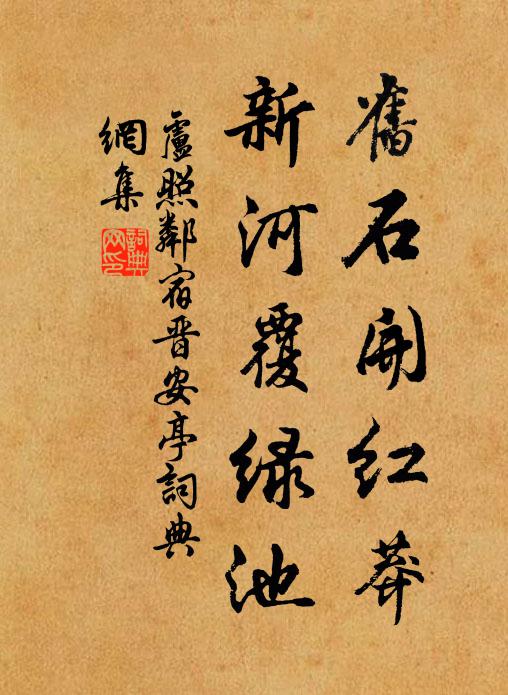 舊石開紅莽
新河覆綠池
盧照鄰宿晋安亭詞典
網集
詞典
網印